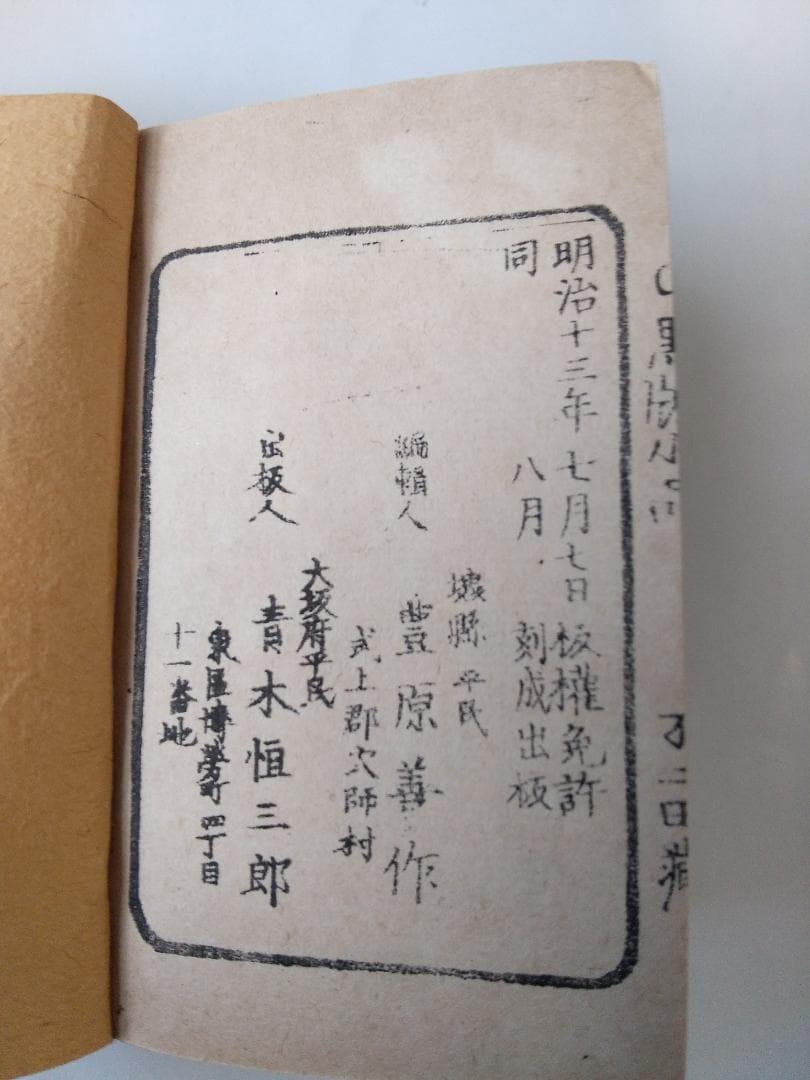 明治十三年七月七日板權免許
同 八月 刻成出板
堺縣平民
編輯人 豊原善作
式上郡穴師村
大坂府平民
出板人 青木恒三郎
東區博労町四丁目
十一番地